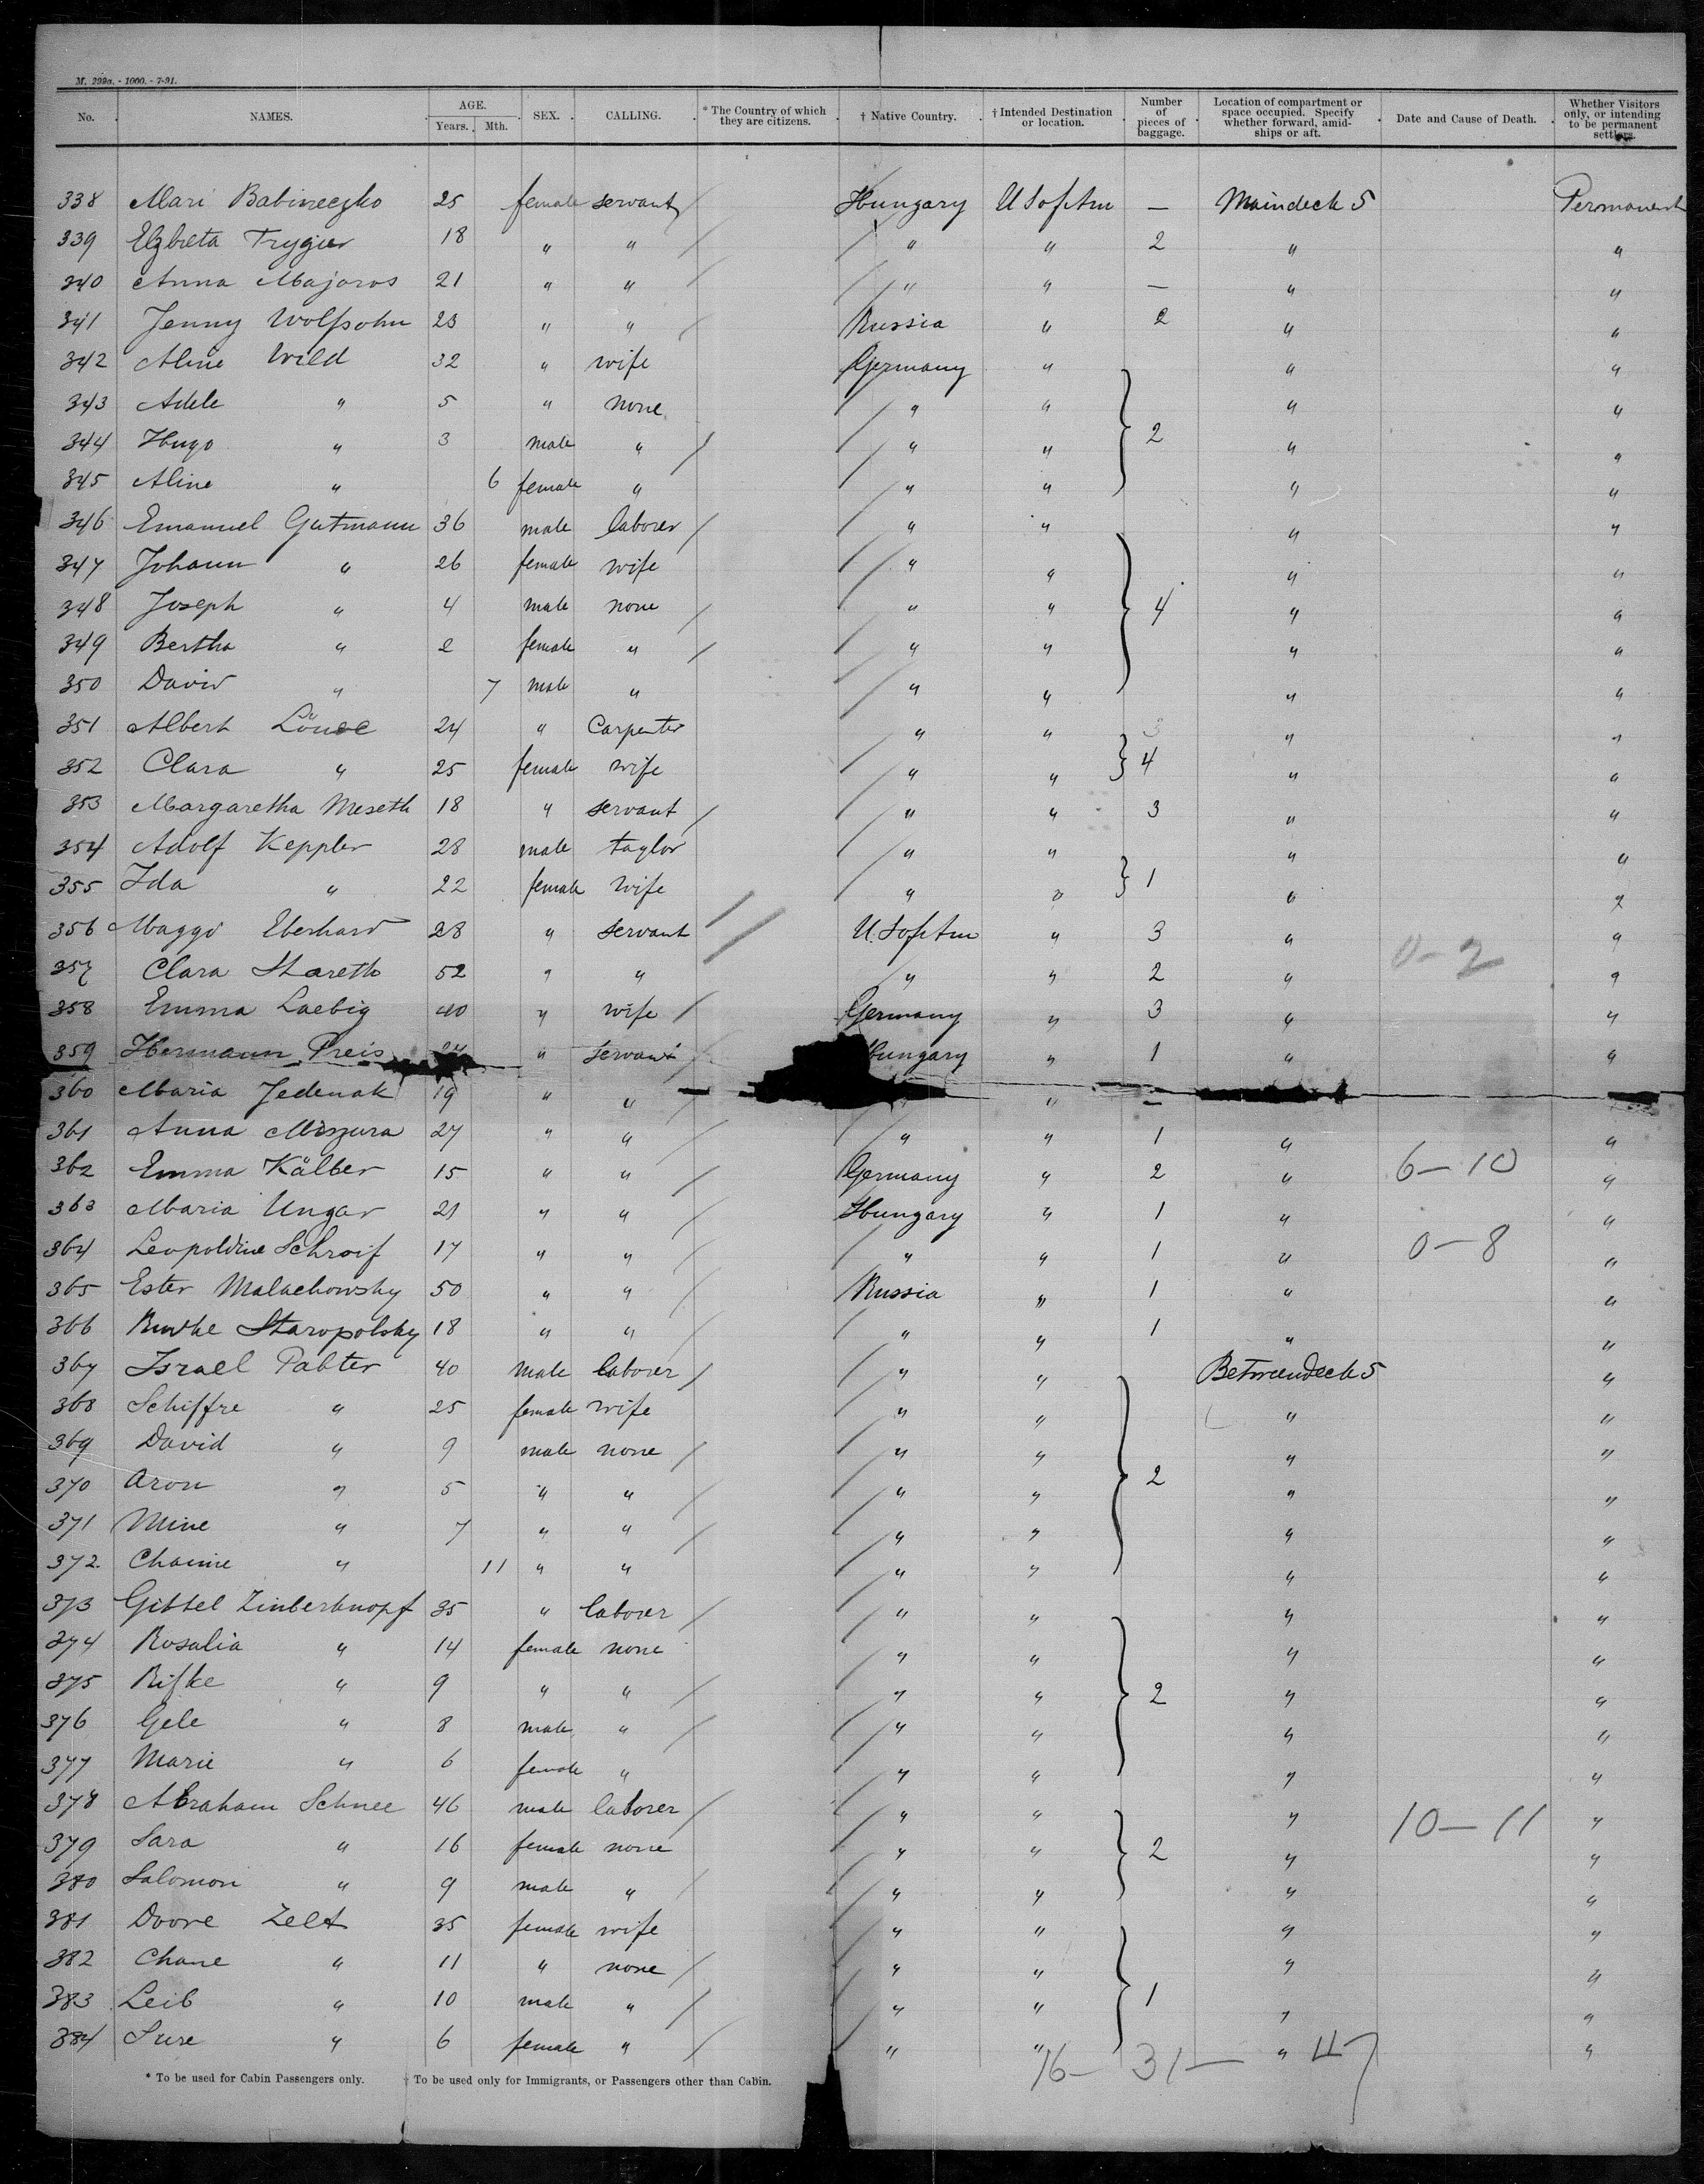 M. 299a. - 1000. - 7-91.
No. NAMES. AGE. Years. Mth. SEX. CALLING. * The Country of which they are citizens. † Native Country. † Intended Destination or location. Number of pieces of baggage. Location of compartment or space occupied. Specify whether forward, amidships or aft. Date and Cause of Death. Whether Visitors only, or intending to be permanent settlers.
338 Mari Babineczko 25 female servant Hungary U S of Am — Maindeck 5 Permanent
339 Elzbieta Trygier 18 " " " " 2 " "
340 Anna Majoros 21 " " " " — " "
341 Jenny Wolfsohn 23 " " Russia " 2 " "
342 Aline Wild 32 " wife Germany " " "
343 Adele " 5 " none " " " "
344 Hugo " 3 male " " " 2 " "
345 Aline " 6 female " " " " "
346 Emanuel Gutmann 36 male laborer " " " "
347 Johann " 26 female wife " " " "
348 Joseph " 4 male none " " 4 " "
349 Bertha " 2 female " " " " "
350 David " 7 male " " " " "
351 Albert 24 " Carpenter " " 3 " "
352 Clara " 25 female wife " " 4 " "
353 Margaretha Meseth 18 " servant " " 3 " "
354 Adolf Keppler 28 male taylor " " " "
355 Ida " 22 female wife " " 1 " "
356 Maggi Eberhard 28 " servant U. S of Am " 3 " "
357 Clara Stareth 52 " " " " 2 " 0-2 "
358 Emma Laebig 40 " wife Germany " 3 " "
359 Hermann Preis 24 " servant Hungary " 1 " "
360 Maria Jedenak 19 " " " " —
361 Anna Miszura 27 " " " " 1 " "
362 Emma Kälber 15 " " Germany " 2 " 6-10 "
363 Maria Ungar 21 " " Hungary " 1 " "
364 Leopoldine Schroif 17 " " " " 1 " 0-8 "
365 Ester Malachowsky 50 " " Russia " 1 " "
366 Staropolsky 18 " " " " 1 " "
367 Israel Pabter 40 male laborer " " Betweendeck 5 "
368 Schiffre " 25 female wife " " " "
369 David " 9 male none " " " "
370 Aron " 5 " " " " 2 " "
371 Mine " 7 " " " " " "
372 Chaime " 11 " " " " " "
373 Gittel Zinberknopf 35 " laborer " " " "
374 Rosalia " 14 female none " " " "
375 Rifke " 9 " " " " 2 " "
376 Gele " 8 male " " " " "
377 Marie " 6 female " " " " "
378 Abraham Schnee 46 male laborer " " " 10-11 "
379 Sara " 16 female none " " 2 " "
380 Salomon " 9 male " " " " "
381 Dvore Zelt 35 female wife " " " "
382 Chane " 11 " none " " " "
383 Leib " 10 male " " " 1 " "
384 Sure " 6 female " " " " "
16- 31- 47
* To be used for Cabin Passengers only. † To be used only for Immigrants, or Passengers other than Cabin.